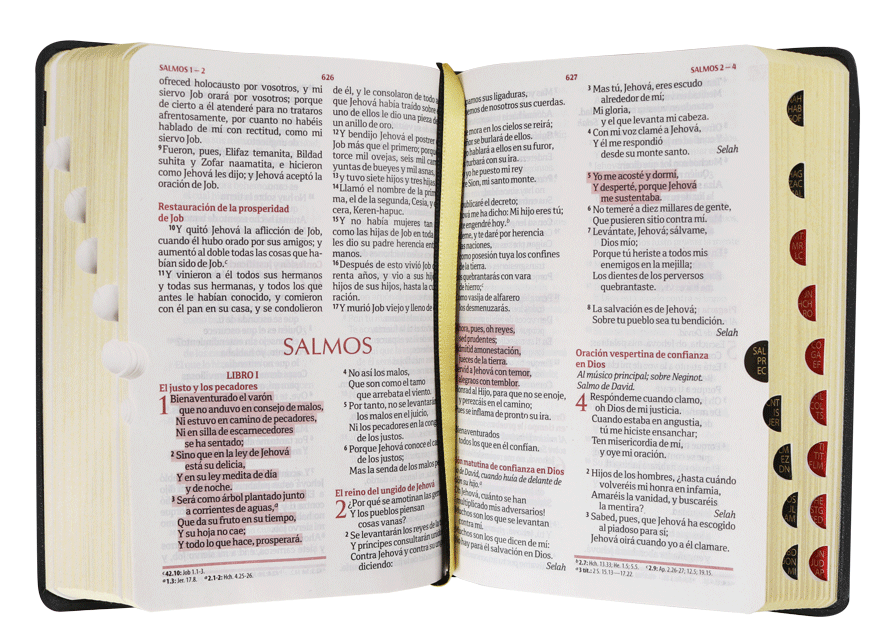 SALMOS 1 — 2
626
ofreced holocausto por vosotros, y mi
siervo Job orará por vosotros; porque
de cierto a él atenderé para no trataros
afrentosamente, por cuanto no habéis
hablado de mí con rectitud, como mi
siervo Job.
9Fueron, pues, Elifaz temanita, Bildad
suhita y Zofar naamatita, e hicieron
como Jehová les dijo; y Jehová aceptó la
oración de Job.
Restauración de la prosperidad
de Job
10Y quitó Jehová la aflicción de Job,
cuando él hubo orado por sus amigos; y
aumentó al doble todas las cosas que ha-
bían sido de Job.c
11Y vinieron a él todos sus hermanos
y todas sus hermanas, y todos los que
antes le habían conocido, y comieron
con él pan en su casa, y se condolieron
de él, y le consolaron de todo
que Jehová había traído sobre
uno de ellos le dio una pieza d
un anillo de oro.
12Y bendijo Jehová el postrer
Job más que el primero; porq
torce mil ovejas, seis mil cam
yuntas de bueyes y mil asnas,
13y tuvo siete hijos y tres hijas
14Llamó el nombre de la prim
ma, el de la segunda, Cesia, y
cera, Keren-hapuc.
15Y no había mujeres tan
como las hijas de Job en toda
les dio su padre herencia ent
manos.
16Después de esto vivió Job c
renta años, y vio a sus hij
hijos de sus hijos, hasta la cu
ración.
17Y murió Job viejo y lleno de
SALMOS
LIBRO I
El justo y los pecadores
1 Bienaventurado el varón
que no anduvo en consejo de malos,
Ni estuvo en camino de pecadores,
Ni en silla de escarnecedores
se ha sentado;
2 Sino que en la ley de Jehová
está su delicia,
Y en su ley medita de día
y de noche.
3 Será como árbol plantado junto
a corrientes de aguas,a
Que da su fruto en su tiempo,
Y su hoja no cae;
Y todo lo que hace, prosperará.
4 No así los malos,
Que son como el tamo
que arrebata el viento.
5 Por tanto, no se levantarán
los malos en el juicio,
Ni los pecadores en la cong
de los justos.
6 Porque Jehová conoce el ca
de los justos;
Mas la senda de los malos p
El reino del ungido de Jehová
2 ¿Por qué se amotinan las gen
Y los pueblos piensan
cosas vanas?
2 Se levantarán los reyes de la
Y príncipes consultarán unid
Contra Jehová y contra su un
diciendo:
c 42.10: Job 1.1-3.
a 1.3: Jer. 17.8. a 2.1-2: Hch. 4.25-26.
627
SALMOS 2 — 4
pamos sus ligaduras,
emos de nosotros sus cuerdas.
e mora en los cielos se reirá;
or se burlará de ellos.
hablará a ellos en su furor,
urbará con su ira.
yo he puesto mi rey
re Sion, mi santo monte.
ublicaré el decreto;
me ha dicho: Mi hijo eres tú;
engendré hoy.b
deme, y te daré por herencia
as naciones,
omo posesión tuya los confines
de la tierra.
quebrantarás con vara
de hierro;c
omo vasija de alfarero
os desmenuzarás.
hora, pues, oh reyes,
sed prudentes;
mitid amonestación,
ueces de la tierra.
rvid a Jehová con temor,
alegraos con temblor.
onrad al Hijo, para que no se enoje,
y perezcáis en el camino;
es se inflama de pronto su ira.
enaventurados
todos los que en él confían.
matutina de confianza en Dios
de David, cuando huía de delante de
su hijo.a
h Jehová, cuánto se han
ultiplicado mis adversarios!
uchos son los que se levantan
ontra mí.
uchos son los que dicen de mí:
o hay para él salvación en Dios.
Selah
3 Mas tú, Jehová, eres escudo
alrededor de mí;
Mi gloria,
y el que levanta mi cabeza.
4 Con mi voz clamé a Jehová,
Y él me respondió
desde su monte santo.
Selah
5 Yo me acosté y dormí,
Y desperté, porque Jehová
me sustentaba.
6 No temeré a diez millares de gente,
Que pusieren sitio contra mí.
7 Levántate, Jehová; sálvame,
Dios mío;
Porque tú heriste a todos mis
enemigos en la mejilla;
Los dientes de los perversos
quebrantaste.
8 La salvación es de Jehová;
Sobre tu pueblo sea tu bendición.
Selah
Oración vespertina de confianza
en Dios
Al músico principal; sobre Neginot.
Salmo de David.
4 Respóndeme cuando clamo,
oh Dios de mi justicia.
Cuando estaba en angustia,
tú me hiciste ensanchar;
Ten misericordia de mí,
y oye mi oración.
2 Hijos de los hombres, ¿hasta cuándo
volveréis mi honra en infamia,
Amaréis la vanidad, y buscaréis
la mentira?
Selah
3 Sabed, pues, que Jehová ha escogido
al piadoso para sí;
Jehová oirá cuando yo a él clamare.
b 2.7: Hch. 13.33; He. 1.5; 5.5. c 2.9: Ap. 2.26-27; 12.5; 19.15.
a 3 tít.: 2 S. 15.13—17.22.
SAL
PR
EC